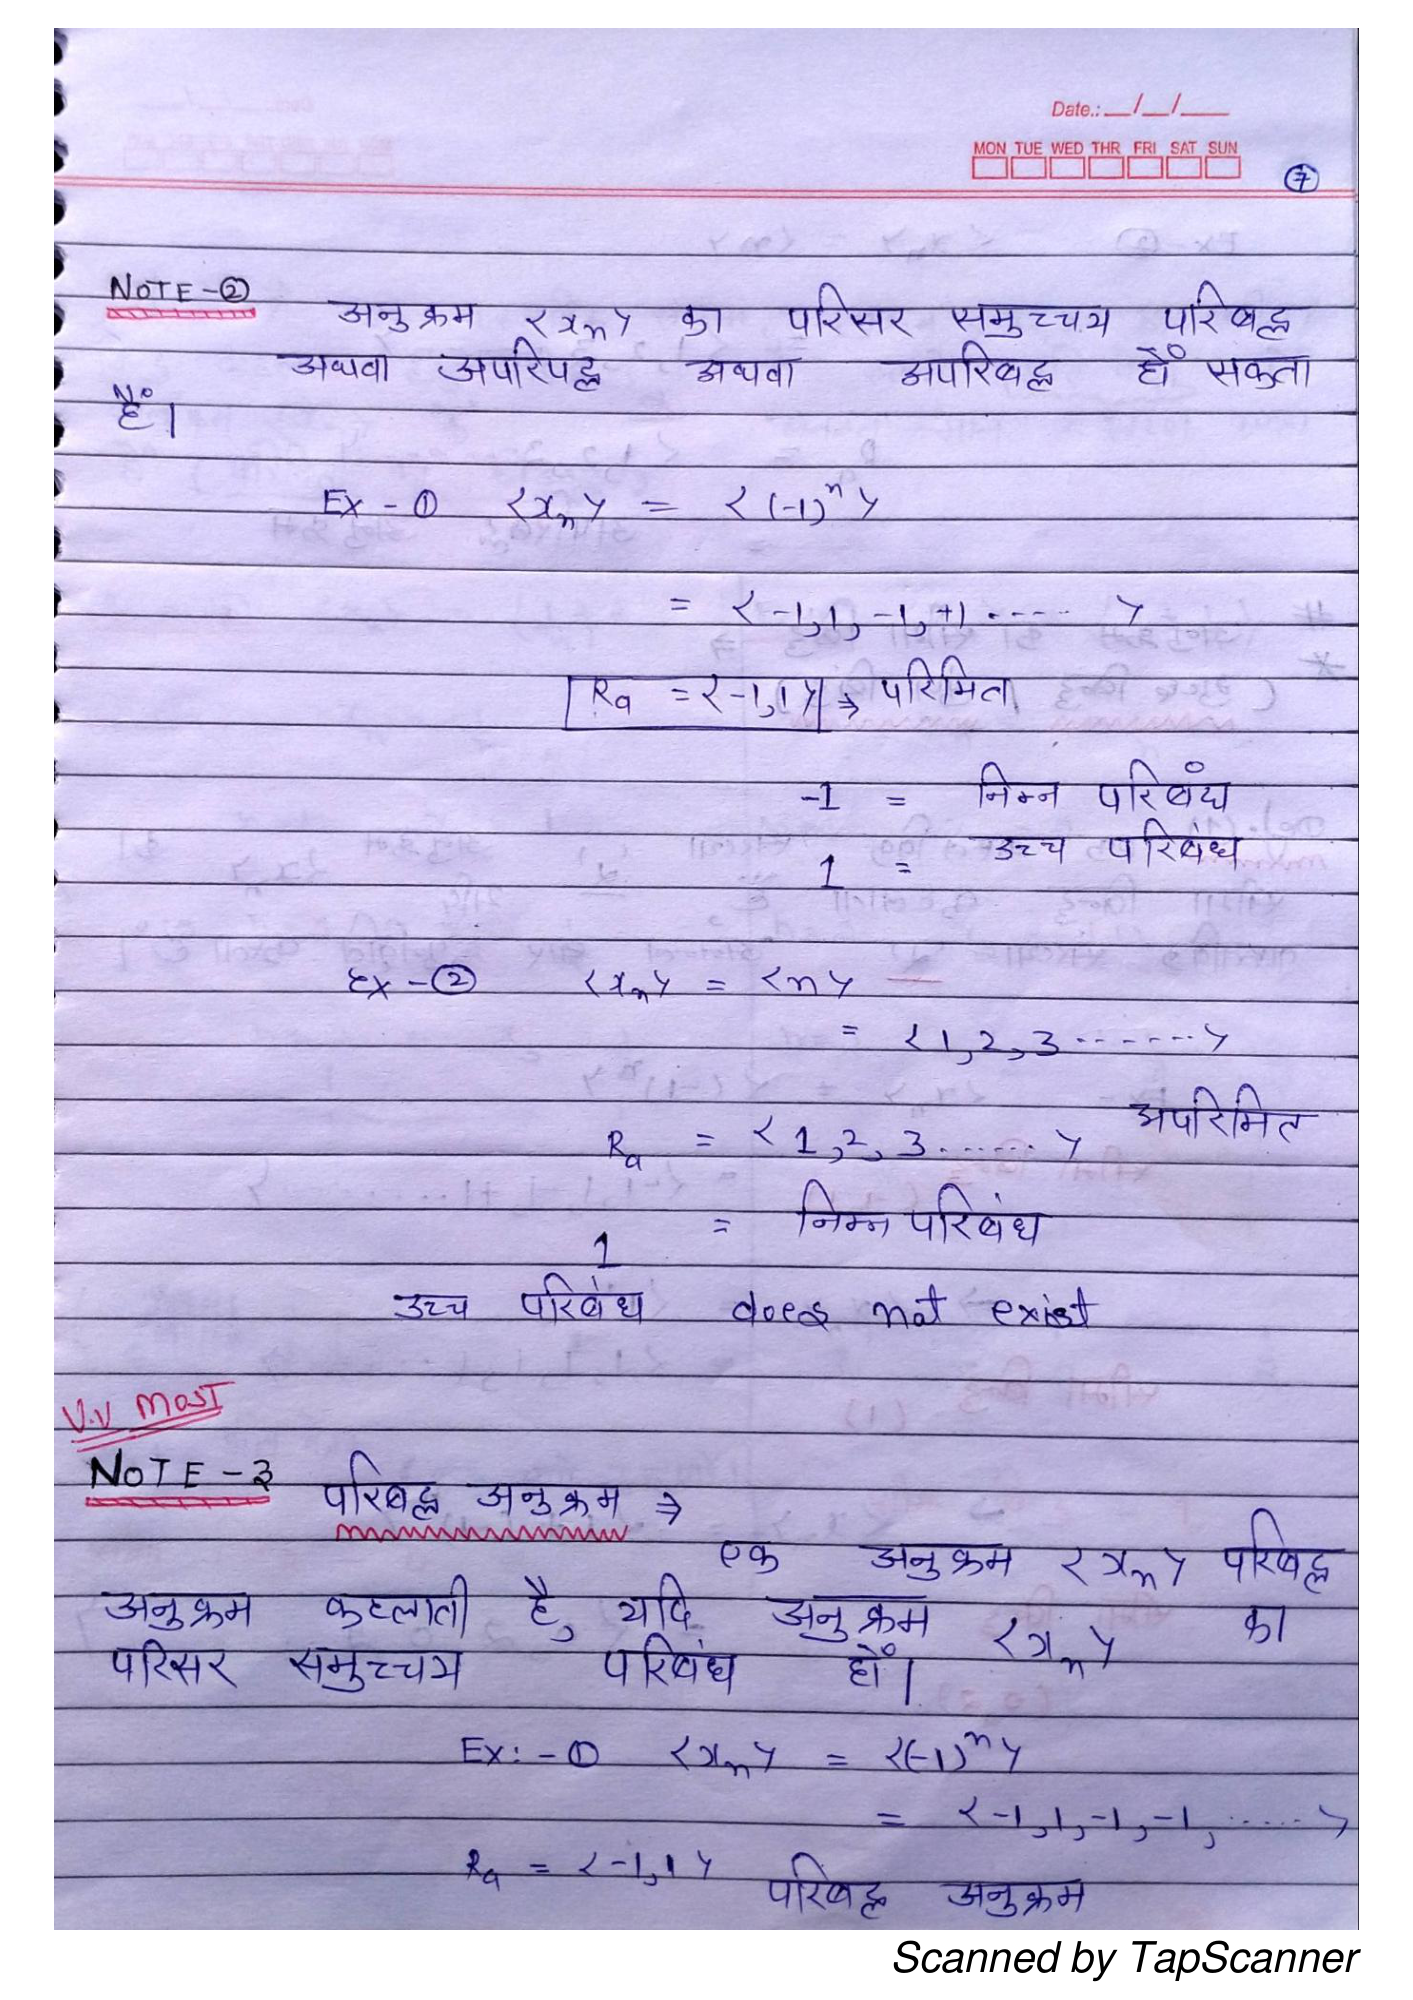 Date.: __/__/____
MON TUE WED THR FRI SAT SUN
7
NOTE-②
अनुक्रम <xₙ> का परिसर समुच्चय परिबद्ध
अथवा अपरिपद्ध अथवा अपरिबद्ध हों सकता
हैं।
Ex-① <xₙ> = <(-1)ⁿ>
= <-1,1,-1,+1.....>
Rₐ = <-1,1> ⇒ परिमित
-1 = निम्न परिबंध
1 = उच्च परिबंध
Ex-② <xₙ> = <n>
= <1,2,3.......>
Rₐ = <1,2,3......> अपरिमित
1 = निम्न परिबंध
उच्च परिबंध does not exist
V.V most
NOTE-3 परिबद्ध अनुक्रम ⇒
एक अनुक्रम <xₙ> परिबद्ध
अनुक्रम कहलाती है, यदि अनुक्रम <xₙ> का
परिसर समुच्चय परिबंध हों।
Ex:-① <xₙ> = <(-1)ⁿ>
= <-1,1,-1,-1,.....>
Rₐ = <-1,1> परिबद्ध अनुक्रम
Scanned by TapScanner